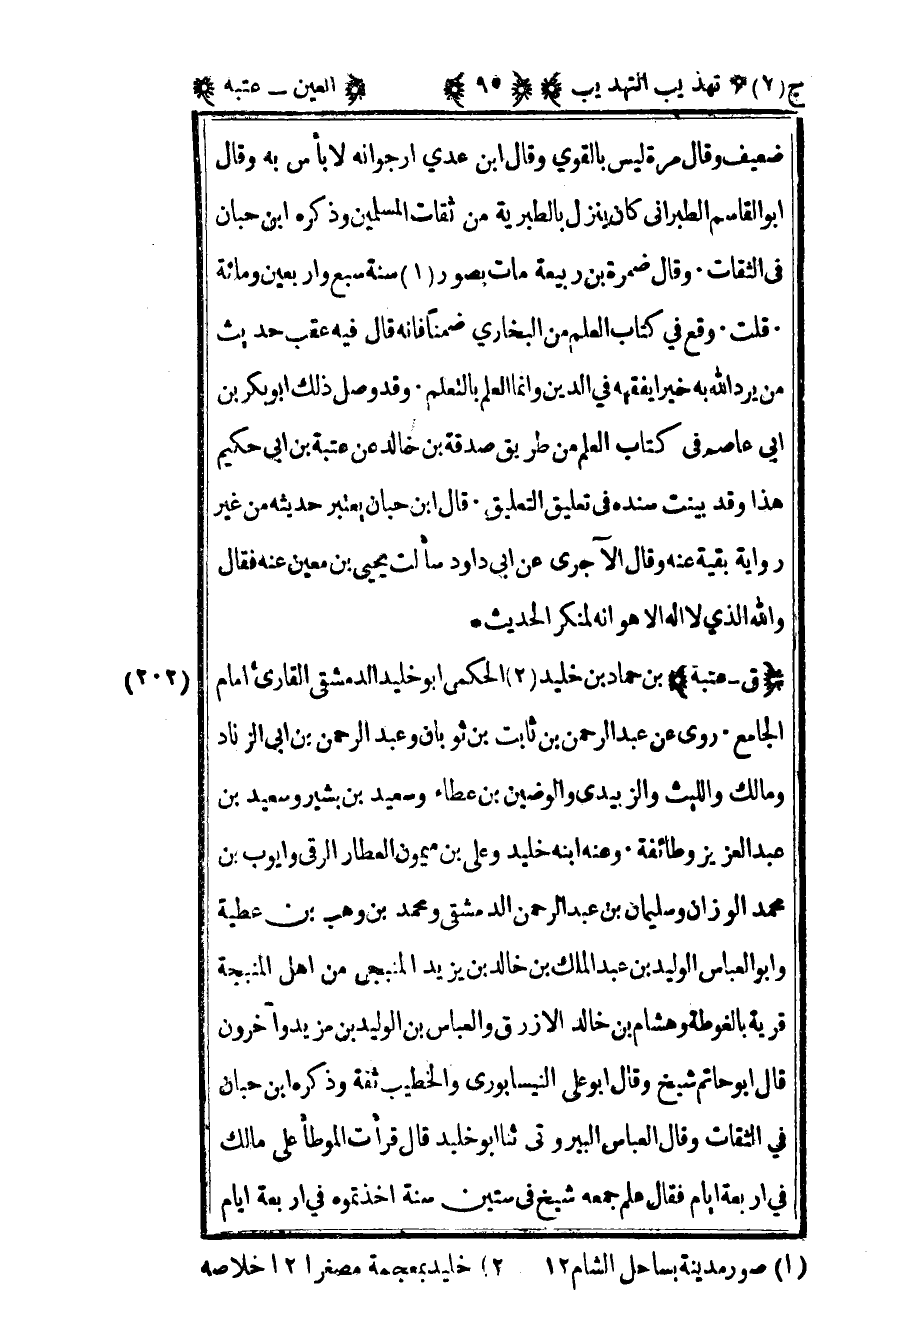 ج (٧) تهذيب التهذيب ٩٥ العين ـ عتبه
ضعيف وقال مرة ليس بالقوي وقال ابن عدي ارجوانه لا بأس به وقال
ابوالقاسم الطبرانى كان ينزل بالطبرية من ثقات المسلمين وذكره ابن حبان
فى الثقات · وقال ضمرة بن ربيعة مات بصور (١) سنة سبع واربعين ومائة
· قلت · وقع في كتاب العلم من البخاري ضمنًا فانه قال فيه عقب حديث
من يرد الله به خيرا يفقهه في الدين وانما العلم بالتعلم · وقد وصل ذلك ابوبكر بن
ابي عاصم فى كتاب العلم من طريق صدقة بن خالد عن عتبة بن ابي حكيم
هذا وقد بينت سنده فى تعليق التعليق · قال ابن حبان يعتبر حديثه من غير
رواية بقية عنه وقال الآجرى عن ابي داود سألت يحيى بن معين عنه فقال
والله الذي لا اله الا هو انه لمنكر الحديث •
(٢٠٢) ﴿ق ـ عتبة﴾ بن حماد بن خليد (٢) الحكمى ابو خليد الدمشقى القارئ امام
الجامع · روى عن عبد الرحمن بن ثابت بن ثوبان وعبد الرحمن بن ابى الزناد
ومالك والليث والزبيدى والوضين بن عطاء وسعيد بن بشير وسعيد بن
عبد العزيز وطائفة · وعنه ابنه خليد وعلى بن ميمون العطار الرقى وايوب بن
محمد الوزان وسليمان بن عبد الرحمن الدمشقى ومحمد بن وهب بن عطية
وابو العباس الوليد بن عبد الملك بن خالد بن يزيد المنبجى من اهل المنبجة
قرية بالغوطة وهشام بن خالد الازرق والعباس بن الوليد بن مزيد وآخرون
قال ابو حاتم شيخ وقال ابو على النيسابورى والخطيب ثقة وذكره ابن حبان
في الثقات وقال العباس البيروتى ثنا ابو خليد قال قرأت الموطأ على مالك
في اربعة ايام فقال علم جمعه شيخ فى ستين سنة اخذتموه في اربعة ايام
(١) صور مدينة بساحل الشام ١٢ (٢) خليد بمعجمة مصغرا ١٢ خلاصه